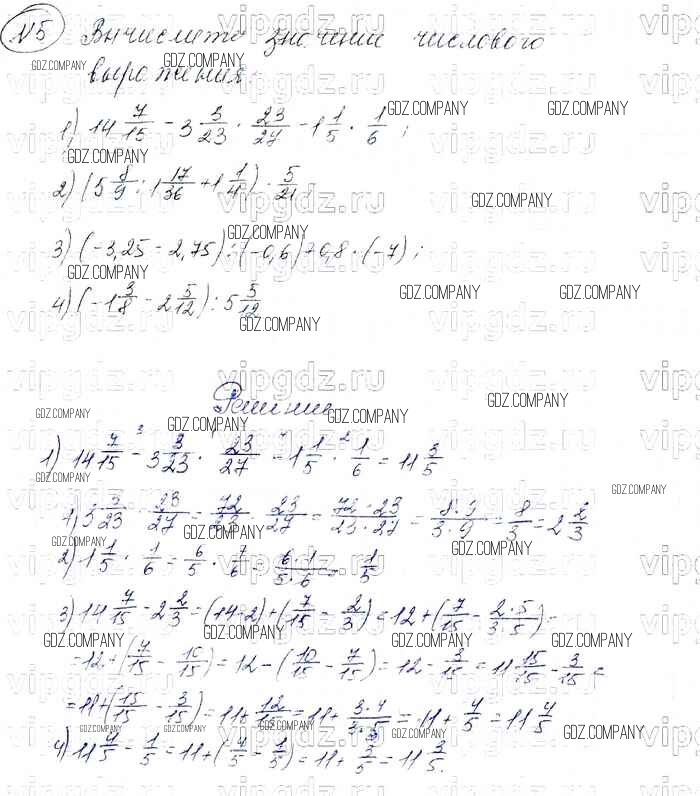 N5 Вычислите значение числового
выражения:
1) 14 7/15 - 3 3/23 · 23/27 - 1 1/5 · 1/6 ;
2) (5 8/9 : 1 17/36 + 1 1/4) · 5/21 ;
3) (-3,25 - 2,75) : (-0,6) + 0,8 · (-7) ;
4) (-1 3/8 - 2 5/12) : 5 5/12
Решение
1) 14 7/15 - 3 3/23 · 23/27 - 1 1/5 · 1/6 = 11 3/5
1) 3 3/23 · 23/27 = 72/23 · 23/27 = 72·23/23·27 = 8·9/3·9 = 8/3 = 2 2/3
2) 1 1/5 · 1/6 = 6/5 · 1/6 = 6·1/5·6 = 1/5
3) 14 7/15 - 2 2/3 = (14-2) + (7/15 - 2/3) = 12 + (7/15 - 2·5/3·5) =
= 12 + (7/15 - 10/15) = 12 - (10/15 - 7/15) = 12 - 3/15 = 11 15/15 - 3/15 =
= 11 + (15/15 - 3/15) = 11 + 12/15 = 11 + 3·4/3·5 = 11 + 4/5 = 11 4/5
4) 11 4/5 - 1/5 = 11 + (4/5 - 1/5) = 11 + 3/5 = 11 3/5.
vipgdz.ru
GDZ.COMPANY